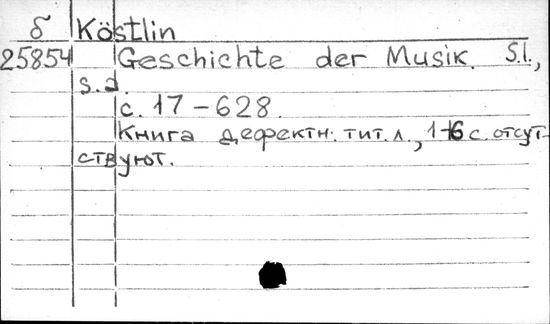 б Köstlin
25854 Geschichte der Musik. S.l.,
s.a.
c. 17-628.
Книга дефектн. тит. л., 1-16 с. отсут-
ствуют.